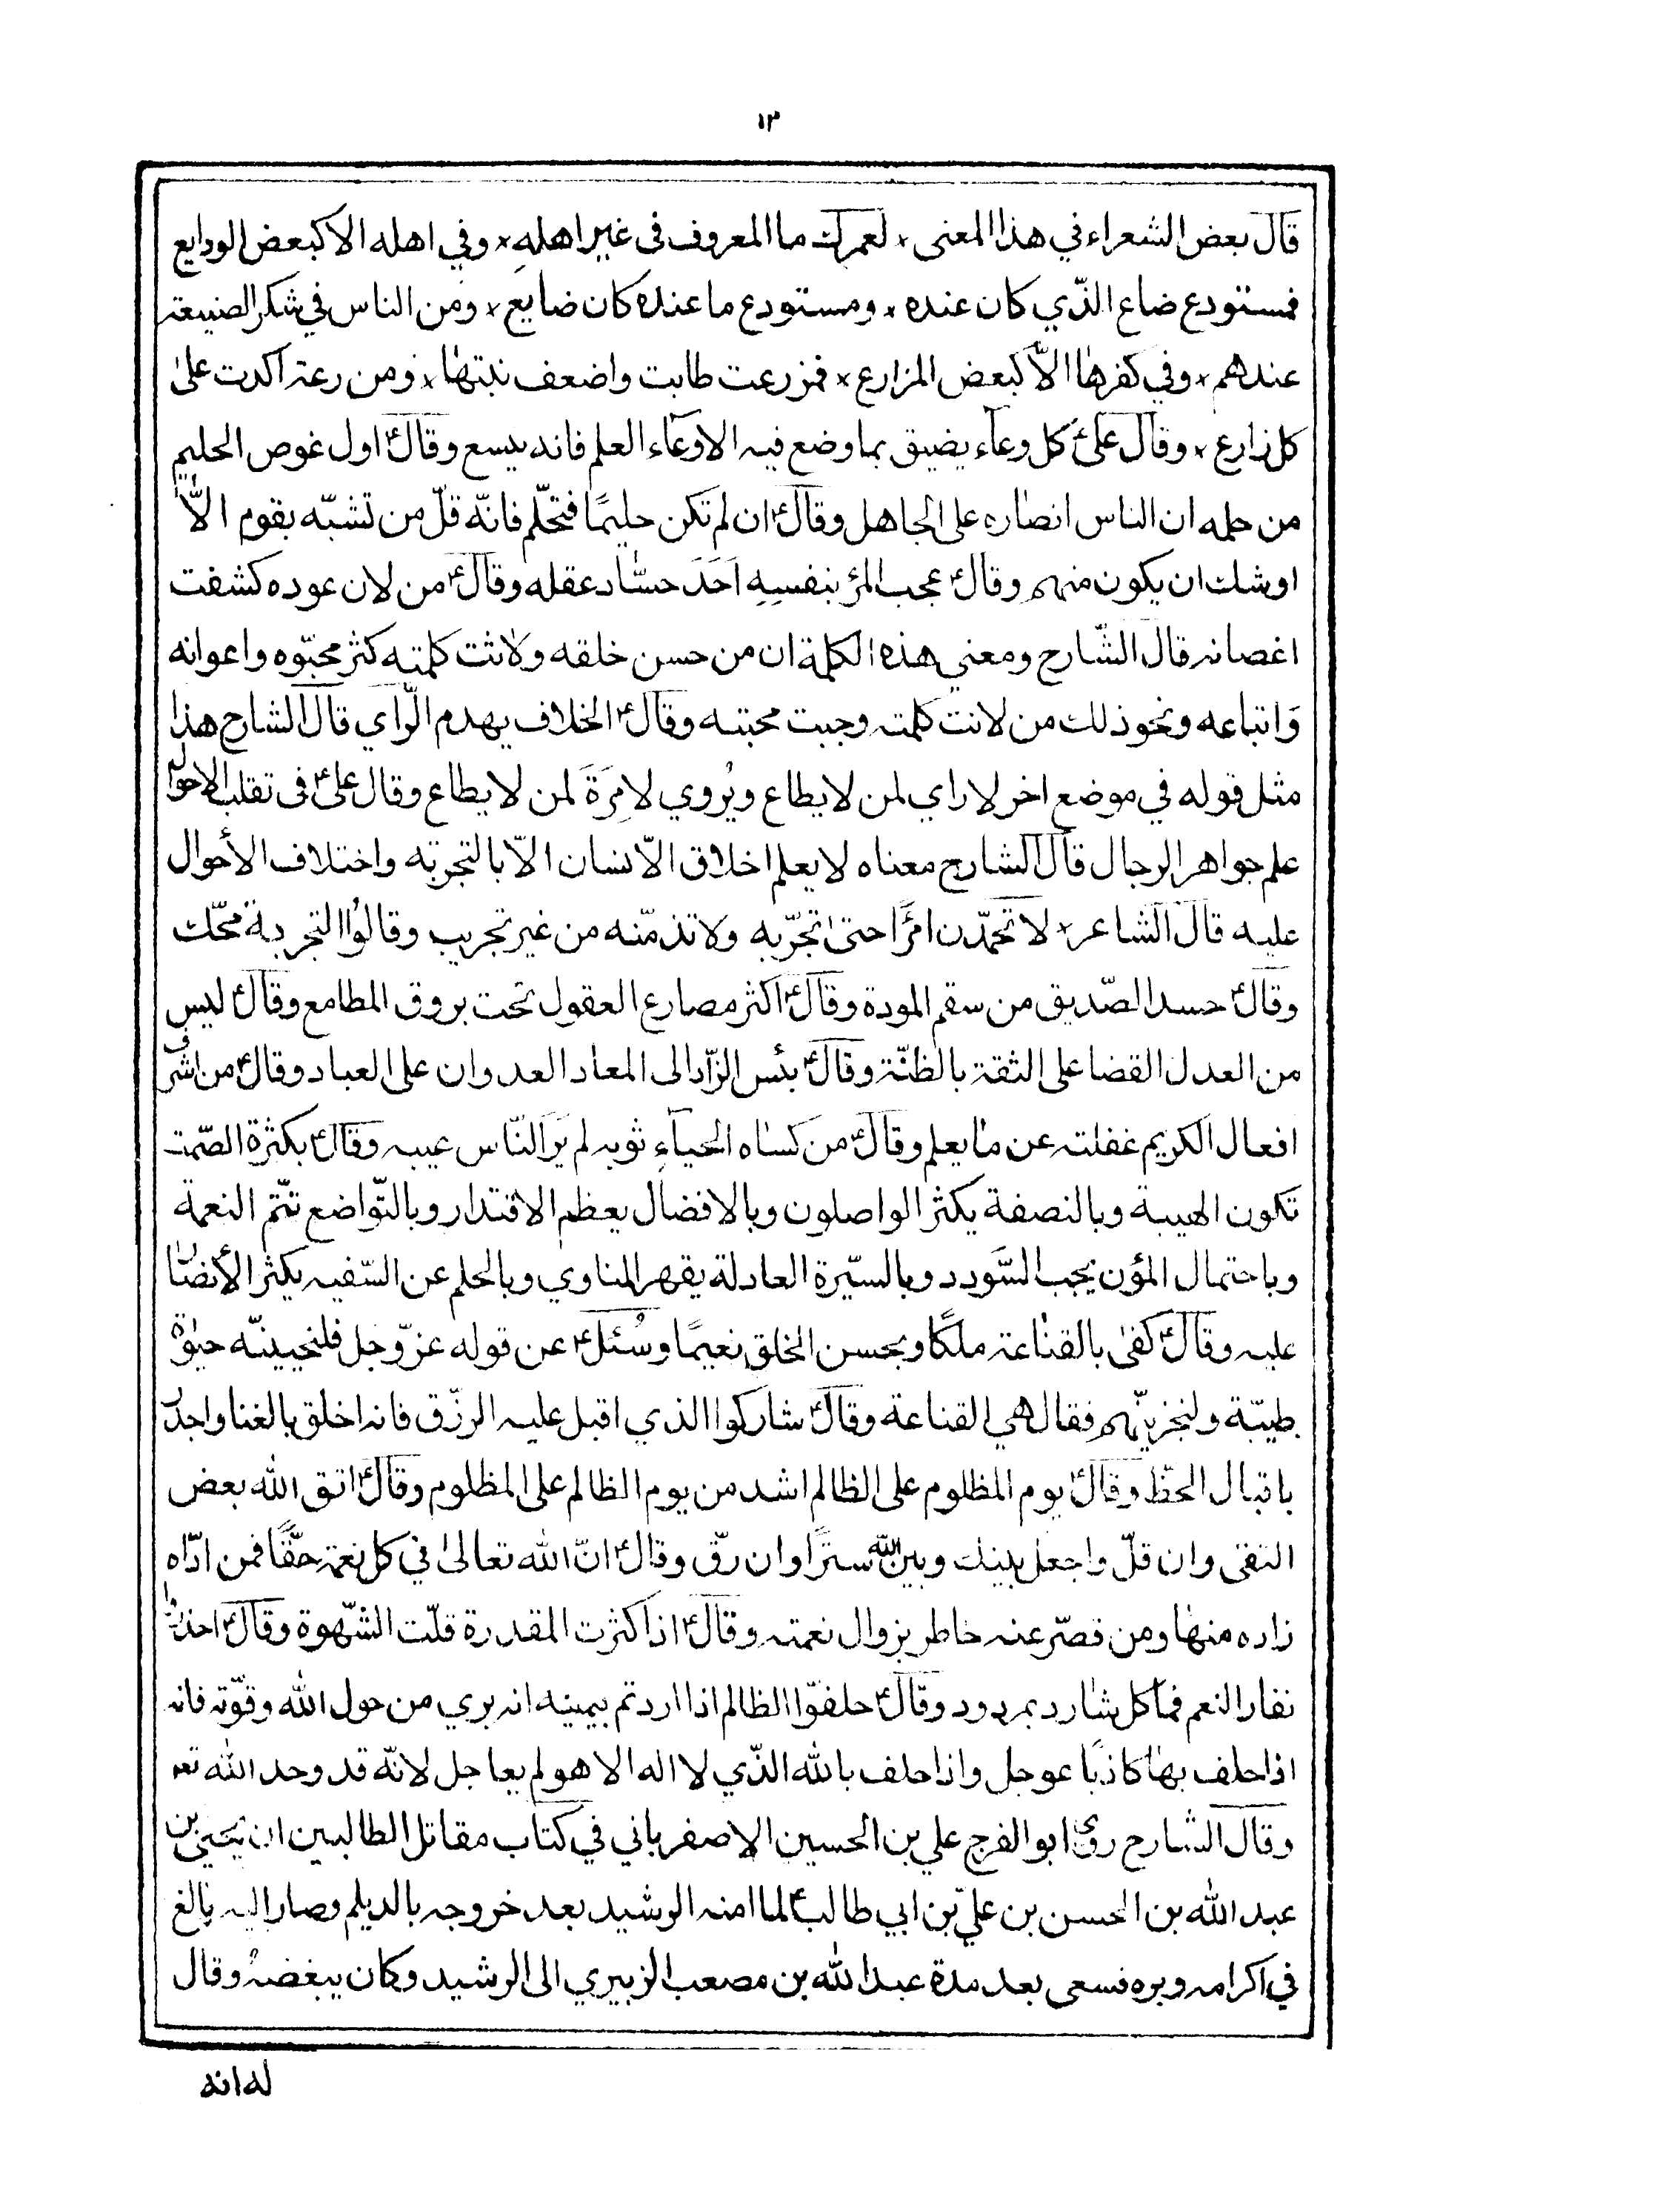 ١٣
قال بعض الشعراء في هذا المعنى × لعمرك ما المعروف فى غير اهلهِ × وفي اهله الا كبعض الودايع
فمستودع ضاع الذّي كان عنده × ومستودع ما عنده كان ضايع × ومن الناس في شكر الصنيعة
عندهم × وفي كفرها الاّ كبعض المزارع × فمزرعت طابت واضعف نبتها × ومن رعة اكدت على
كل زارع × وقال علىؑ كل وعآء يضيق بما وضع فيه الا وعآء العلم فانه يتسع وقالؑ اول عوض الحليم
من حلمه ان الناس انصاره على الجاهل وقالؑ ان لم تكن حليمًا فتحلّم فانّه قلّ من تشبّه بقوم الاّ
اوشك ان يكون منهم وقالؑ عجب المرء بنفسهِ اَحَدَ حسّاد عقله وقالؑ من لان عوده كشفت
اغصانه قال الشّارح ومعني هذه الكلمة ان من حسن خلقه ولانت كلمته كثر محبّوه واعوانه
وَاتباعه ونحو ذلك من لانت كلمته وجبت محبته وقالؑ الخلاف يهدم الرّاي قال الشارح هذا
مثل قوله في موضع اخر لا راي لمن لا يطاع ويُروي لا مِرَةَ لمن لا يطاع وقال علىؑ فى تقلب الاحوال
علم جواهر الرجال قال الشارح معناه لا يعلم اخلاق الاّنسان الاّ بالتجربه واختلاف الأحوال
عليه قال الشاعر × لا تحمدّن امرًا حتىٰ تجرّبه ولا تذمّنه من غير تجريب وقالوُا التجربة محّك
وقالؑ حسد الصّديق من سقم المودة وقالؑ اكثر مصارع العقول تحت بروق المطامع وقالؑ ليس
من العدل القضا على الثقة بالظنّة وقالؑ بئس الزّاد الى المعاد العدوان على العباد وقالؑ من اشرف
افعال الكريم غفلته عن ما يعلم وقالؑ من كساه الحياءِ ثوبه لم يَرَ النّاس عيبه وقالؑ بكثرة الصّمت
تكون الهيبة وبالنصفة يكثر الواصلون وبالافضال يعظم الاقتدار وبالتّواضع تتّم النعمة
وباحتمال المؤن يجب السّودد وبالسّيرة العادلة يقهر المناوي وبالحلم عن السّفيه يكثر الأنصار
عليه وقالؑ كفىٰ بالقناعة ملكًا وبحسن الخلق نعيمًا وسُئلؑ عن قوله عزّ وجل فلنحيينّه حيوٰة
طيبّة ولنجزينّهم فقال هي القناعة وقالؑ شاركوا الذي اقبل عليه الرزّق فانه اخلق بالغنا واجدر
باقبال الحظّ وقالؑ يوم المظلوم على الظالم اشد من يوم الظالم على المظلوم وقالؑ اتق الله بعض
التقى وان قلّ واجعل بينك وبين الله سترًا وان رقّ وقالؑ انّ الله تعالىٰ في كل نعمة حقًّا فمن ادّاه
زاده منها ومن قصّر عنه خاطر بزوال نعمته وقالؑ اذا كثرت المقدرة قلّت الشّهوة وقالؑ احذروا
نفار النعم فمآ كل شارد بمردود وقالؑ حلفوّا الظالم اذا اردتم بيمينه انه بري من حول الله وقوّته فانه
اذا حلف بها كاذبًا عوجل واذا حلف بالله الذّي لا اله الا هو لم يعاجل لانّه قد وحد الله تعه
وقال الشّارح روىٰ ابو الفرج علي بن الحسين الاصفرباني في كتاب مقاتل الطالبين ان يحيىٰ بن
عبد الله بن الحسن بن عليّ بن ابي طالبؑ لما امنه الرشيد بعد خروجه بالديلم وصار اليه بالغ
في اكرامه وبره فسعى بعد مدة عبد الله بن مصعب الزبيري الى الرشيد وكان يبغضهُ وقال
له انه